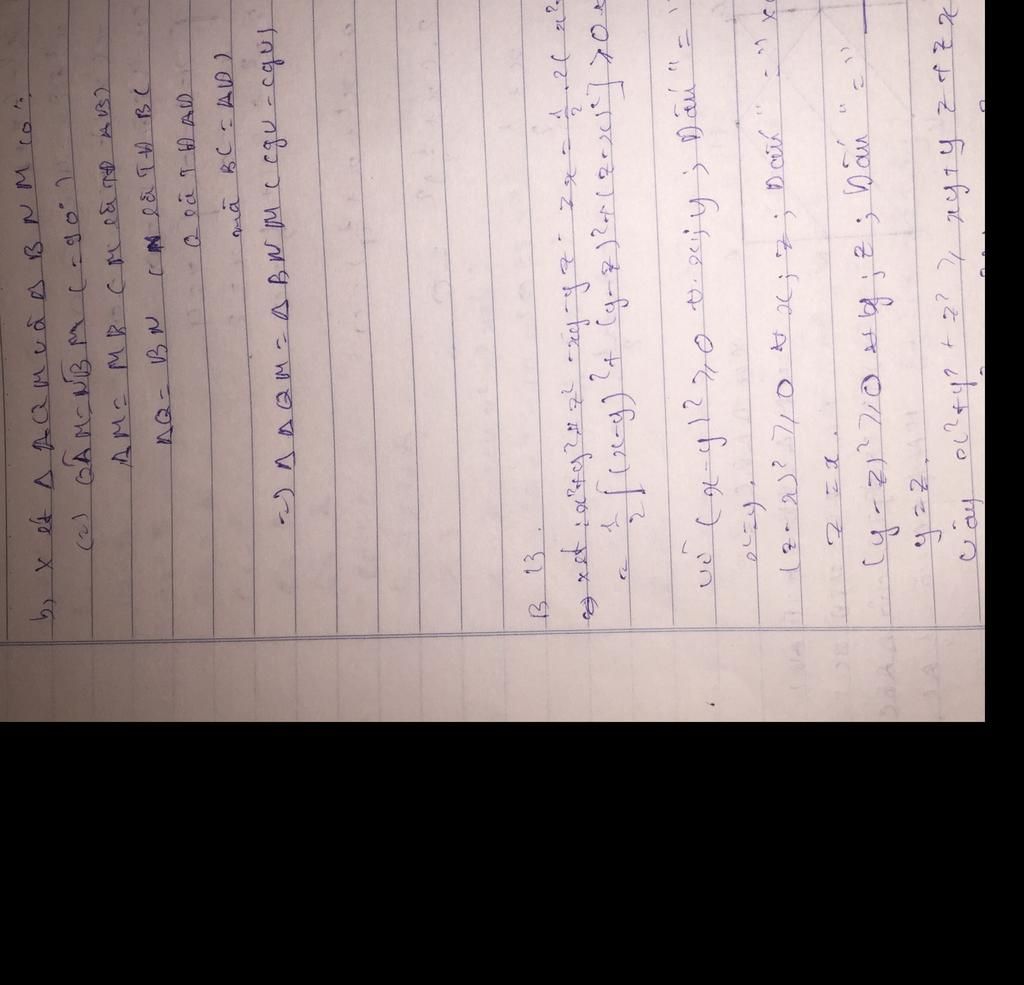 b, xét Δ AQM và Δ BNM có:
QAM = NBM (= 90°)
AM = MB (M là TĐ AB)
AQ = BN (N là TĐ BC
Q là TĐ AD
mà BC = AD)
=> Δ AQM = Δ BNM (cgv - cgv)
B 13.
xét: x²+y²+z² -xy-yz - zx = 1/2 .2( x²
= 1/2 [(x-y)² + (y-z)²+(z-x)²] ≥0
vì (x-y)² ≥ 0 ∀ x; y; Dấu "="
x=y.
(z-x)² ≥ 0 ∀ x; z; Dấu "="
z = x.
(y-z)² ≥ 0 ∀ y; z; Dấu "="
y = z.
Vậy x²+y²+z² ≥ xy+yz+zx